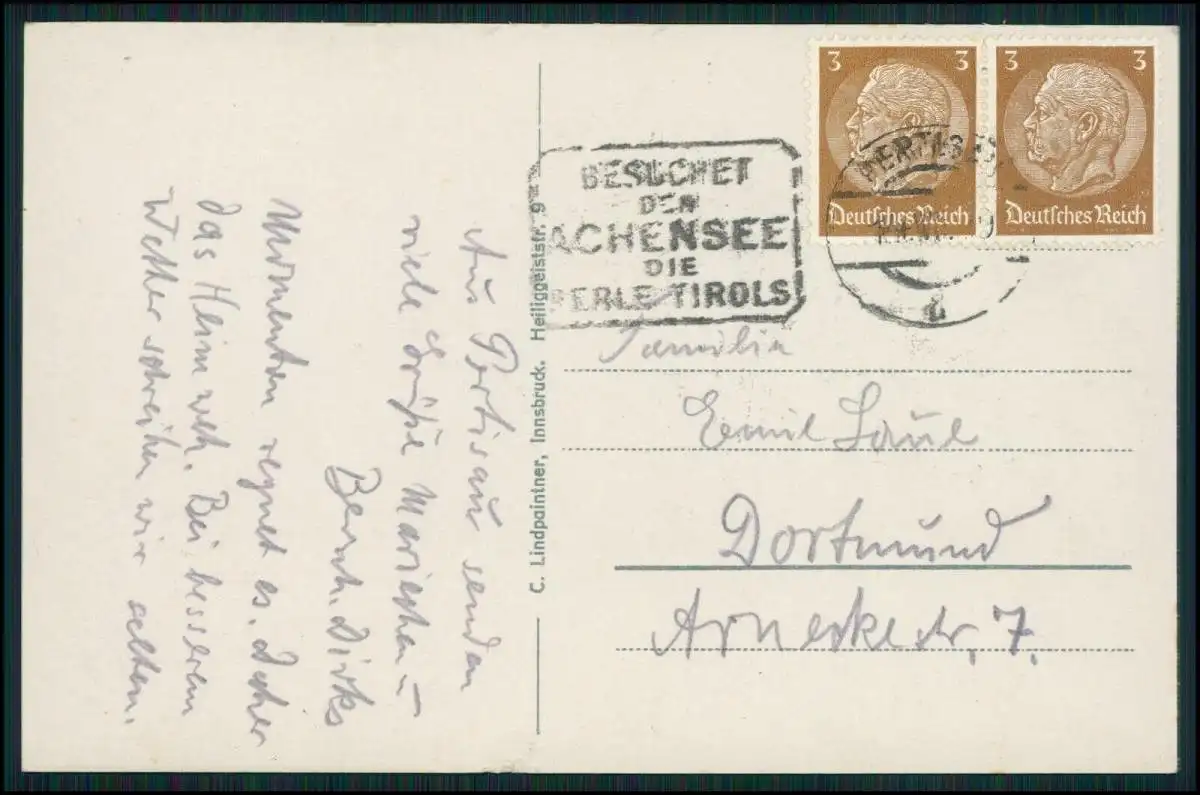 Aus Pertisau senden
viele Grüße Mariechen –
Bernh. Dirks
Momentan regnet es. Daher
das Heimweh. Bei besserem
Wetter schreiben wir selten.
C. Lindpaintner, Innsbruck. Heiliggeiststr. 9
BESUCHET
DEN
ACHENSEE
DIE
PERLE TIROLS
3 3
Deutsches Reich
3 3
Deutsches Reich
Familie
Emil Saul
Dortmund
Arneckestr. 7.